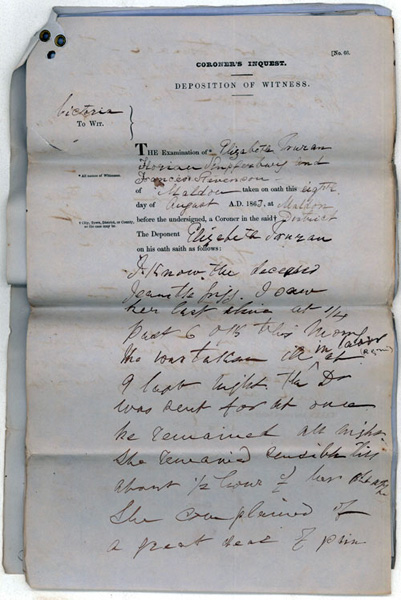 [No. 60.
CORONER'S INQUEST.
DEPOSITION OF WITNESS.
Victoria
To Wit.
THE Examination of * Elizabeth Truran
and
* All names of Witnesses.
Frances Stevenson
of Maldon taken on oath this eighth
day of August A.D. 1867, at Maldon
† City, Town, District, or County,
as the case may be.
before the undersigned, a Coroner in the said † District
The Deponent Elizabeth Truran
on his oath saith as follows:
I know the deceased
I saw
her last alive at 1/4
past 6 o'c this morn
She was taken ill in labor at
9 last night the Dr
was sent for at once
he remained all night
She remained sensible till
about 1/2 hour of her death
She complained of
a great deal of pain